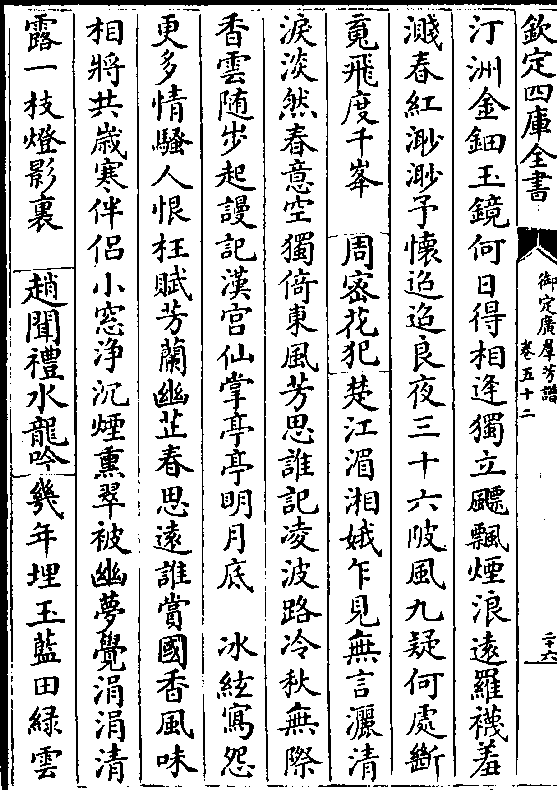 欽定四庫全書
御定廣羣芳譜
卷五十二
二十六
汀洲金鈿玉鏡何日得相逢獨立飄飄煙浪遠羅襪羞
濺春紅渺渺予懷迢迢良夜三十六陂風九疑何處斷
竟飛度千峯　周密花犯楚江湄湘娥乍見無言灑清
淚淡然春意空獨倚東風芳思誰記凌波路冷秋無際
香雲随步起謾記漢宮仙掌亭亭明月底　冰絃寫怨
更多情騷人恨枉賦芳蘭幽芷春思遠誰賞國香風味
相將共歲寒伴侣小窓浄沉煙熏翠被幽夢覺涓涓清
露一枝燈影裏　趙聞禮水龍吟幾年埋玉藍田緑雲